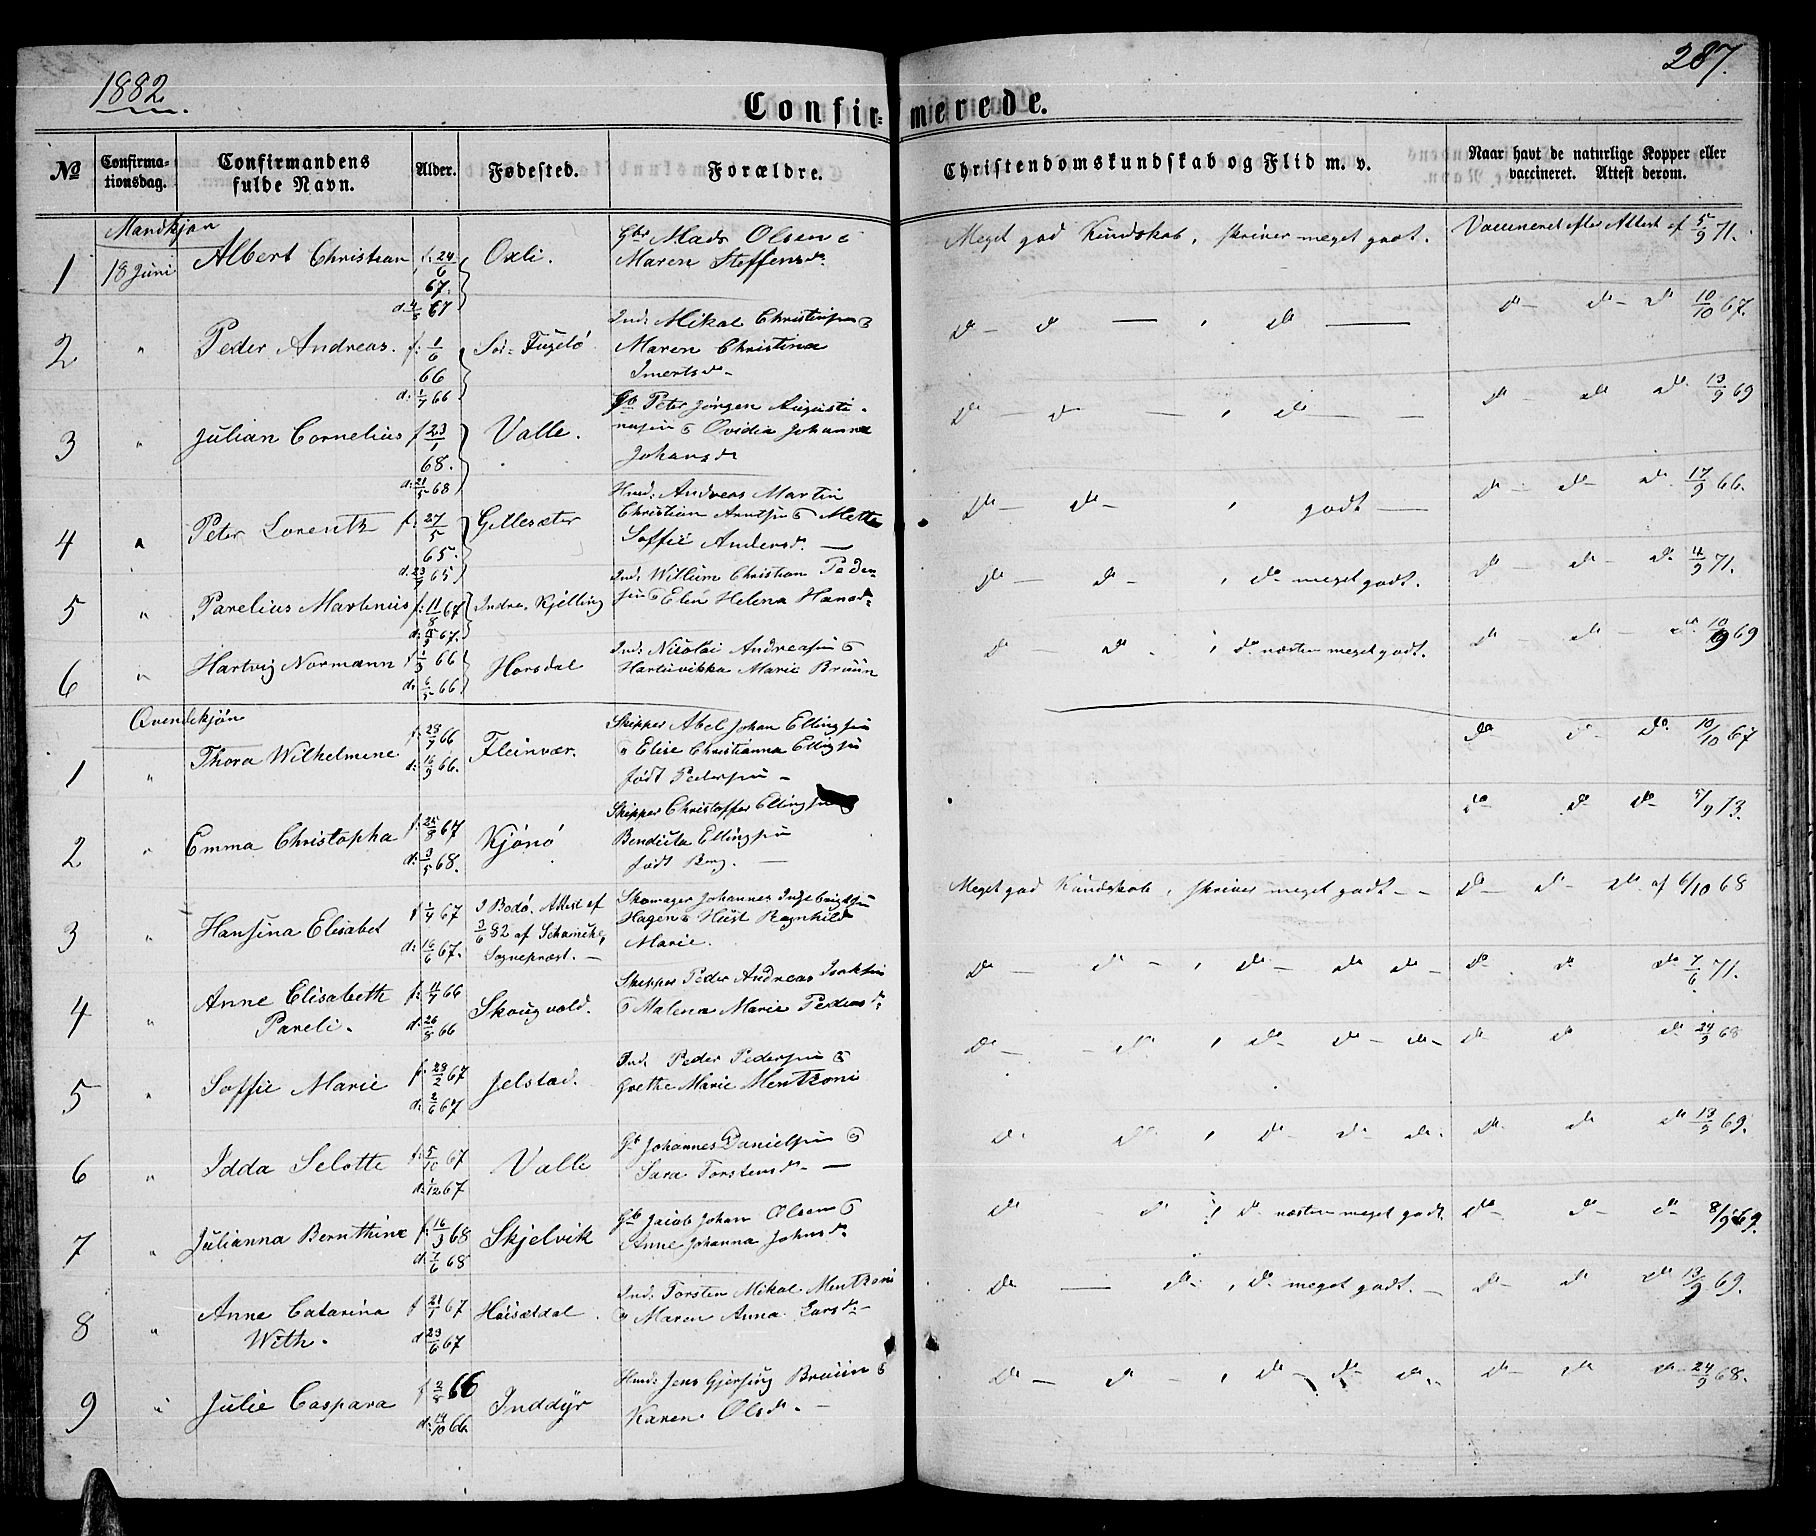 1882
287.
Confirmerede.
No
Confirmationsdag.
Confirmandens fulde Navn.
Alder.
Fødested.
Forældre.
Christendomskundskab og Flid m. v.
Naar havt de naturlige Kopper eller vaccineret. Attest derom.
Mandkjøn
1 18 Juni Albert Christian f. 24/6 67. d. 4/8 67 Oxli. Gbr Mads Olsen &
Maren Steffensd.
Meget god Kundskab, skriver meget godt. Vaccineret efter Attest af 5/9 71.
2 " Peder Andreas. f. 1/6 66 d. 1/7 66 Sør-Fugelø Ind. Mikal Christensen &
Maren Christina
Imertsd.
D - D - , D - D - D - D 10/10 67.
3 " Julian Cornelius f 23/1 68. d. 21/5 68 Valle. Gb Peter Jørgen Augusti-
nusen & Ovidia Johanna
Johansd
D - D - , D - D - D D. 13/9 69
4 " Peter Lorentz f. 27/5 65. d. 23/7 65 Gillesæter Huusd. Andreas Martin
Christian Arntsen & Mette
Soffie Andersd.
D - D - , godt - D - D - D. 17/9 66.
5 " Parelius Martinius f. 11/8 67 d. 67. Indre, Kjelling Ind. Willum Christian Peder-
sen & Elen Helena Hansd.
D - D - , D meget godt. D - D - D. 4/9 71.
6 " Hartvig Normann f 66 d. 6/5 66 Horsdal Ind. Nicolai Andreasen &
Hartvikka Marie Bruun
D - D. , D næsten meget godt. D - D - D. 10/9 69
Qvindekjøn
1 " Thora Wilhelmine f. 23/7 66 d. 16/9 66. Fleinvær. Skipper Abel Johan Ellingsen
& Elise Christianna Ellingsen
født Pedersen
D D - D. 10/10 67
2 " Emma Christopha f. 25/8 67 d. 3/5 68. Kjønø Skipper Christoffer Ellingsen
Bendicta Ellingsen
født Berg.
D D D 5/9 73.
3 " Hansina Elisabet f 1/4 67 d. 16/6 67. I Bodø. Attest af
3/6 82 af
Sognepræst. Skomager Johannes Ingebrigtsen
Hagen & Hust Ragnhild
Marie.
Meget god Kundskab, skriver meget godt - - D - D - D. af 6/10 68
4 " Anne Elisabeth
Pareli. f. 11/7 66 d. 26/8 66 Skougvold. Skipper Peder Andreas Isaksen
& Malena Marie Pedersd.
D - D - , D - D D - D. D D 7/6 71.
5 " Soffie Marie f. 23/2 67 d. 2/6 67 Jelstad. Ind. Peder Pedersen &
Grethe Marie Mentzoni
D - - D , D - D - D - D D D 24/9 68
6 " Idda Selotte f. 5/10 67 d. 1/12 67 Valle Gb Johannes Danielsen &
Sara Torstensd.
D. D , D - D - D. D D D 13/9 69.
7 " Julianna Bernthine f. 16/3 68 d. 7/6 68 Skjelvik Gb Jacob Johan Olsen &
Anne Johanna Johnsd.
D - D , D næsten meget godt D - D - D - 8/9 69.
8 " Anne Catarina
With. f 21/1 67 d 23/6 67 Høisætdal. Ind. Torsten Mikal Mentzoni
& Maren Anna Larsd.
D - D - , D - meget godt. - D - D D 13/9 69.
9 " Julie Caspara f. 2/8 66 d. 14/10 66. Inddyr Huusd. Jens Gjersing Bruun &
Karen Olsd.
D - D - , D - D - D. - D - D D 24/9 68.